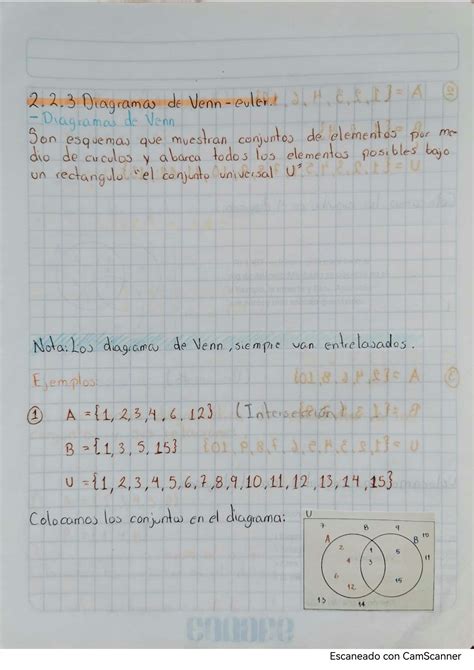 2.2.3 Diagramas de Venn-euler.
- Diagramas de Venn
Son esquemas que muestran conjuntos de elementos por me
dio de circulos y abarca todos los elementos posibles bajo
un rectangulo "el conjunto universal U"
Nota: Los diagrama de Venn, siempre van entrelasados.
Ejemplos:
1 A = {1, 2, 3, 4, 6, 12} (Intersección)
B = {1, 3, 5, 15}
U = {1, 2, 3, 4, 5, 6, 7, 8, 9, 10, 11, 12, 13, 14, 15}
Colocamos los conjuntos en el diagrama:
U
7 B 9
A B 10
2 1 5 11
4 3
6 15
12
13 14
Escaneado con CamScanner